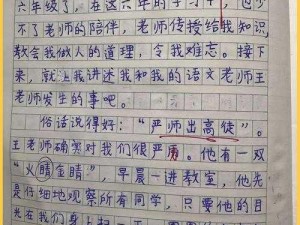 六年级了，在这六年的学习中，也少
不了老师的陪伴，老师传授给我知识
教会我做人的道理，令我难忘。接下
来，就让我讲述我和我的语文老师王
老师发生的事吧。
俗话说得好：“严师出高徒”。
王老师确实对我们很严厉。他有一双
“火睛金睛”，早晨一进教室，他先
是仔细地观察所有同学，只要他的目
光在我们身上